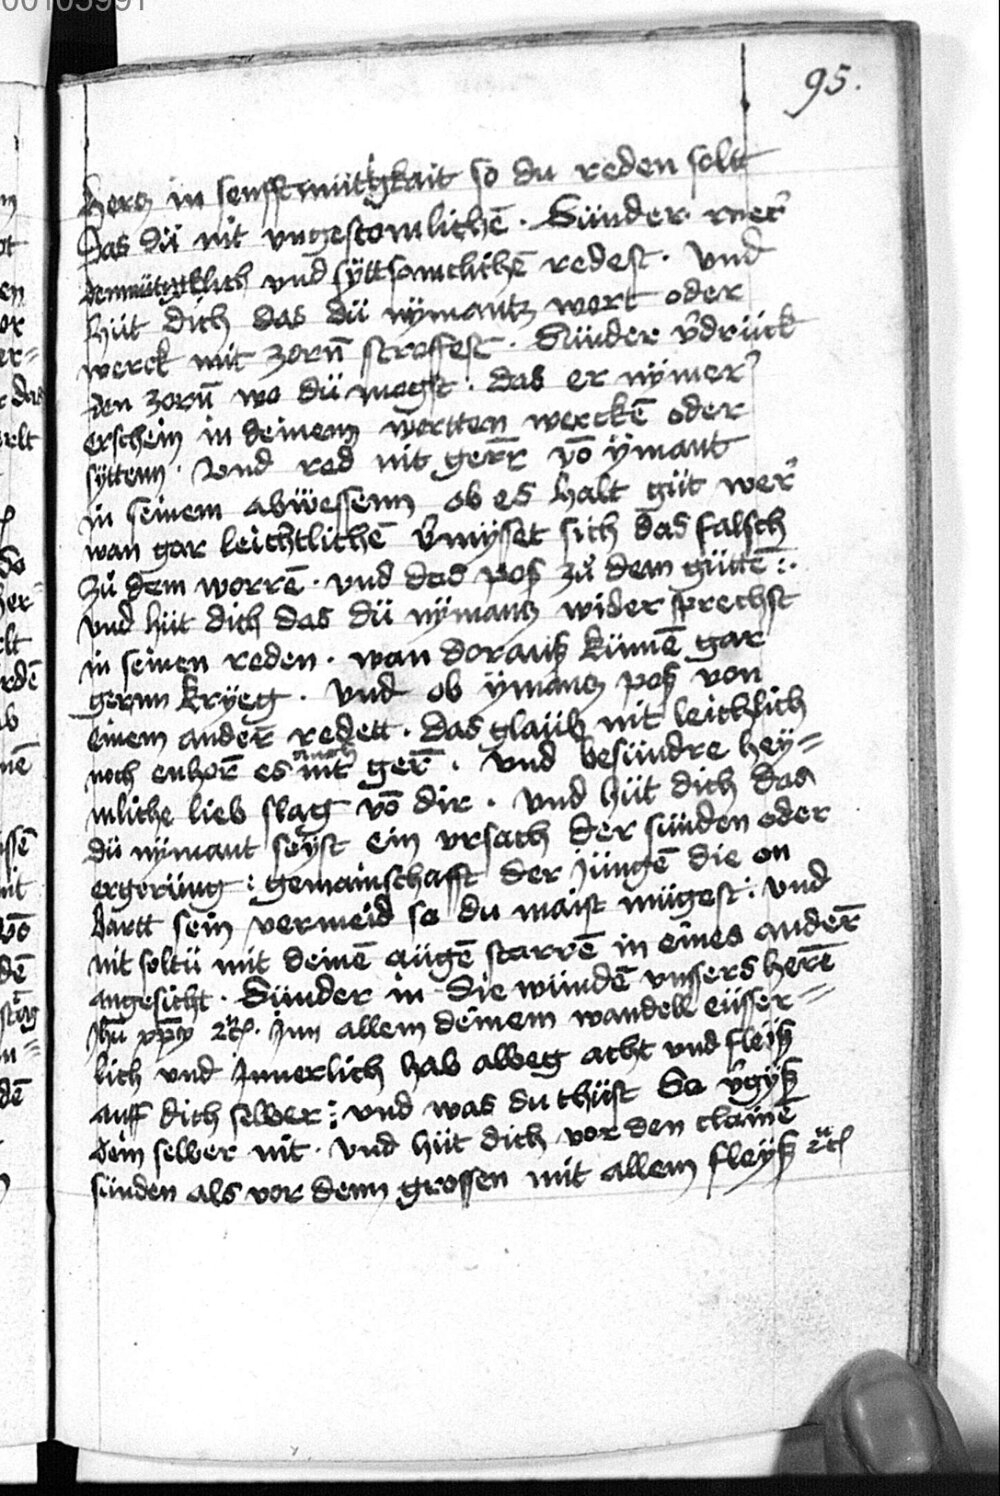 00103991
95.
hercz in senfftmütigkait so du reden solt
Das dü nit vngestömlichē . Sünder mer
demütigklich vnd syttsomclichē redest . vnd
hüt dich das dü nÿmantz wort oder
werck mit zorñ stroffest . Sünder v̄drück
den zorñ wo dü magst : das er nÿmer
erschein in deinem wortten werckē oder
sÿttenn . Vnd red nit gerr̄ vō ÿmant
in seinem abwëssenn ob es halt güt wer
wan gar leichtlichē v̄mÿsset sich das falsch
zů dem worrē . vnd das poß zů dem gütē :.
vnd hüt dich das dü nÿmantz wider sprechst
in seinen reden . wan dorauß kümē gar
gernn krÿeg . Vnd ob ÿmantz poß von
einem ander̄ redett . Das glaub nit leichtlich
noch enhor̄ es auch nit ger̄ . vnd besundre heÿ=
mliche lieb slag vō dir . vnd hüt dich das
dü nÿmant seÿst ein vrsach der sünden oder
ergerüng : gemainschafft der jüngē die on
bartt sein vermeid so du maist mügest : vnd
nit soltü mit deinē augē starrē in eines ander̄
angesicht . Sünder in die wündē vnssers herē
jhū xp̄ı ꝛc̄. Inn allem deinem wandell eüsser=
lich vnd Innerlich hab alweg acht vnd fleÿß
auff dich selber : vnd was du thüst So v̄gÿß
dein selber nit . vnd hüt dich vor den clainē
sünden als vor denn grossen mit allem fleÿß ꝛc̄